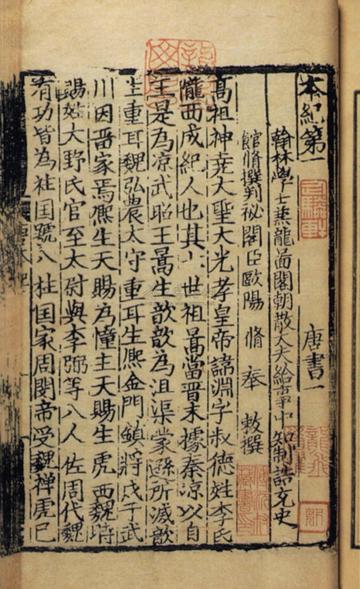 本紀第一　唐書一
翰林學士兼龍圖閣朝散大夫給事中知制誥充史
館脩撰判祕閣臣歐陽　脩　奉　敕撰
高祖神堯大聖大光孝皇帝諱淵字叔德姓李氏
隴西成紀人也其七世祖暠當晉末據秦涼以自
王是為涼武昭王暠生歆歆為沮渠蒙遜所滅歆
生重耳魏弘農太守重耳生熈金門鎮將戍于武
川因畱家焉熈生天賜為幢主天賜生虎西魏時
賜姓大野氏官至太尉與李弼等八人佐周代魏
有功皆為柱国號八柱国家周閔帝受魏禪虎已